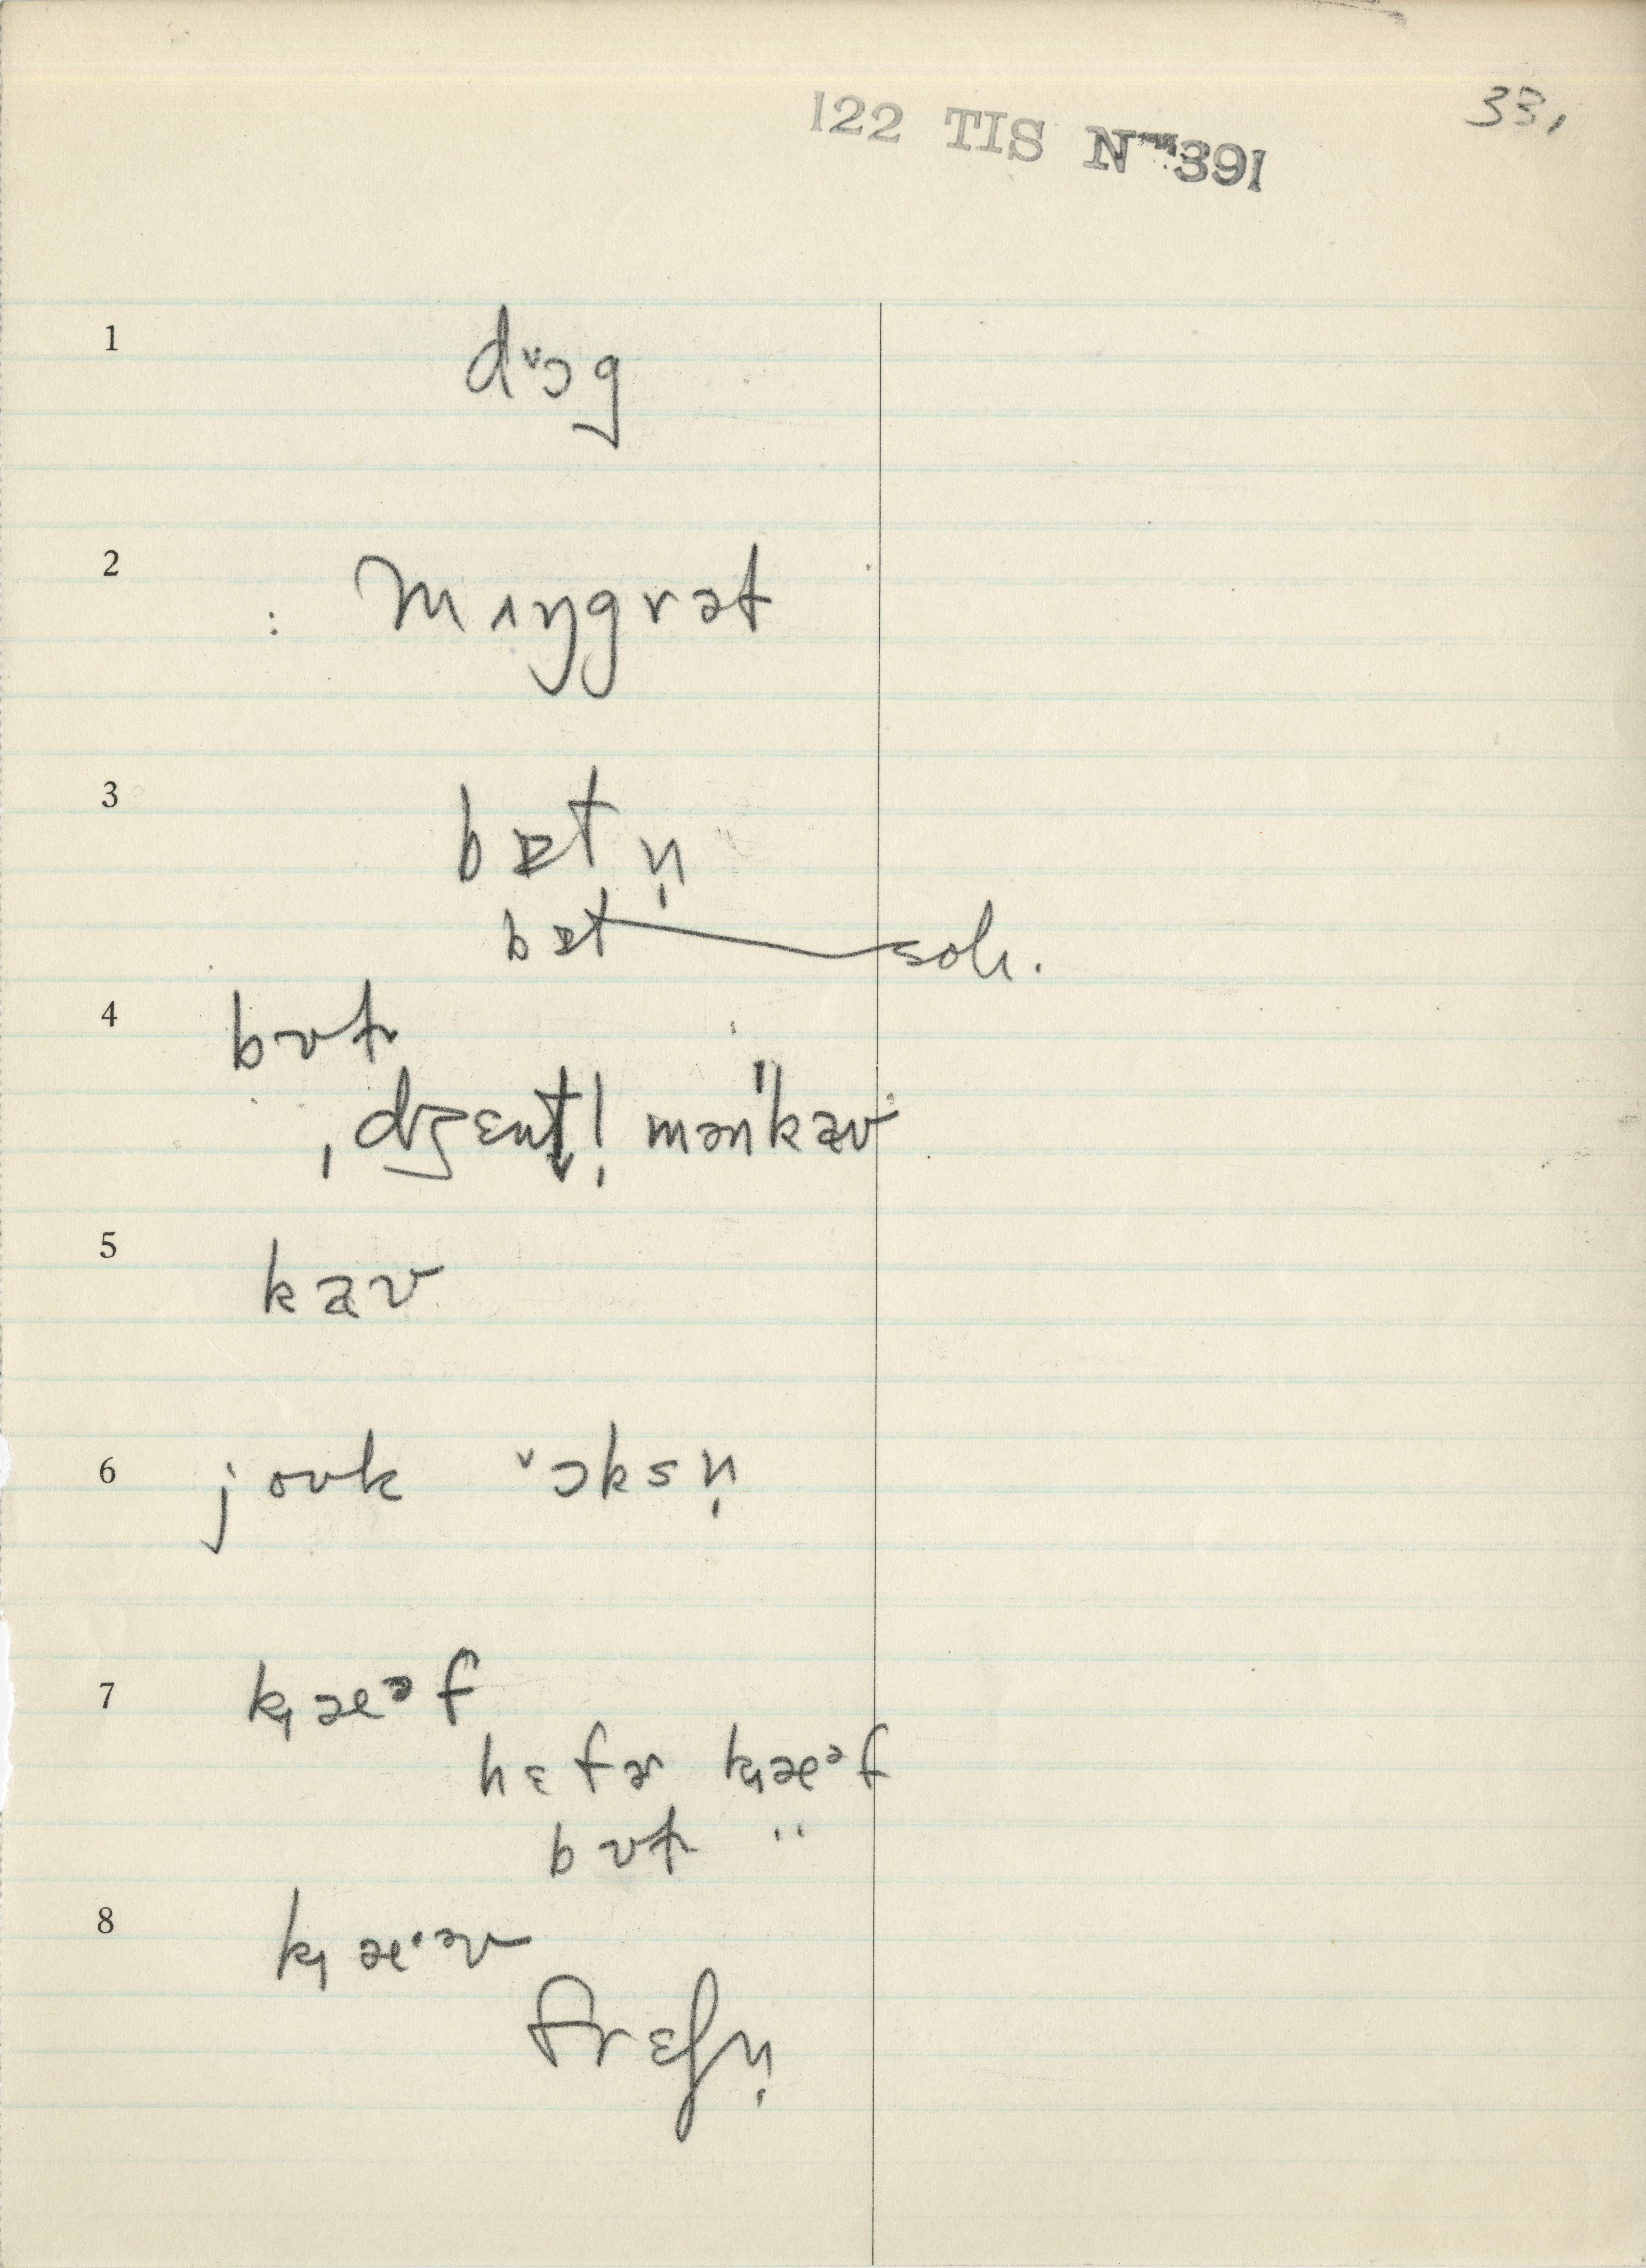 122 TIS N 391
33,
1 dᵛɔg
2 : mɪŋgrət
3 bɐt n̩
bɐt soh.
4 bʊtʃ
ˌdʒɛntl̩mən"kaʊ
5 kaʊ
6 joʊk ᵛɔksn̩
7 k̟æᵊf
hɛfɚ k̟æᵊf
bʊtʃ "
8 k̟æ·əv
frɛʃn̩